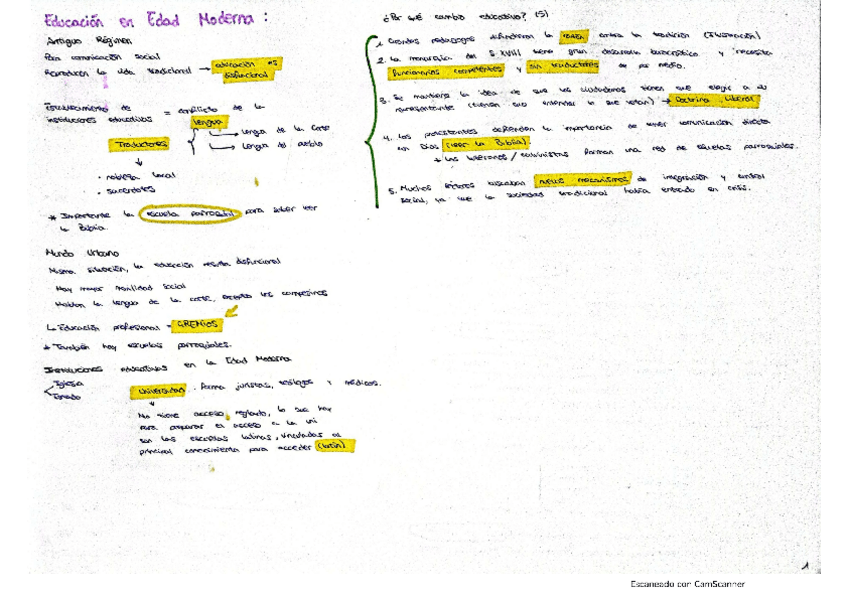 Educación en Edad Moderna:
Antiguo Régimen
Para comunicación social
Reproducen la vida tradicional → educación es
disfuncional
Establecimiento de
instituciones educativas = conflicto de la
lengua
Lengua de la Corte
Lengua del pueblo
Traductores
↓
• nobleza local
• sacerdotes
* Importante la escuela parroquial para saber leer
la Biblia.
Mundo Urbano
Misma situación, la educación resulta disfuncional
Hay mayor movilidad social
Hablan la lengua de la corte, excepto los campesinos
↳ Educación profesional = GREMIOS
* También hay escuelas parroquiales.
Instituciones educativas en la Edad Moderna
Iglesia
Estado
Universidad. Forma juristas, teólogos y médicos.
↓
No tiene acceso reglado, lo que hay
para preparar el acceso a la uni
son las escuelas latinas, vinculadas al
principal conocimiento para acceder (latín)
¿Por qué cambio educativo? (5)
1. Grandes pedagogos defendieron la razón contra la tradición (Ilustración)
2. La monarquía del S. XVIII tiene gran desarrollo burocrático y necesita
funcionarios competentes y sin traductores de por medio.
3. Se mantiene la idea de que los ciudadanos tienen que elegir a su
representante (tienen que entender lo que votan) → Doctrina Liberal
4. Los protestantes defienden la importancia de tener comunicación directa
con Dios (leer la Biblia)
* Los luteranos / calvinistas forman una red de escuelas parroquiales.
5. Muchos lectores buscaban nuevos mecanismos de integración y control
social, ya que la sociedad tradicional había entrado en crisis.
1
Escaneado con CamScanner